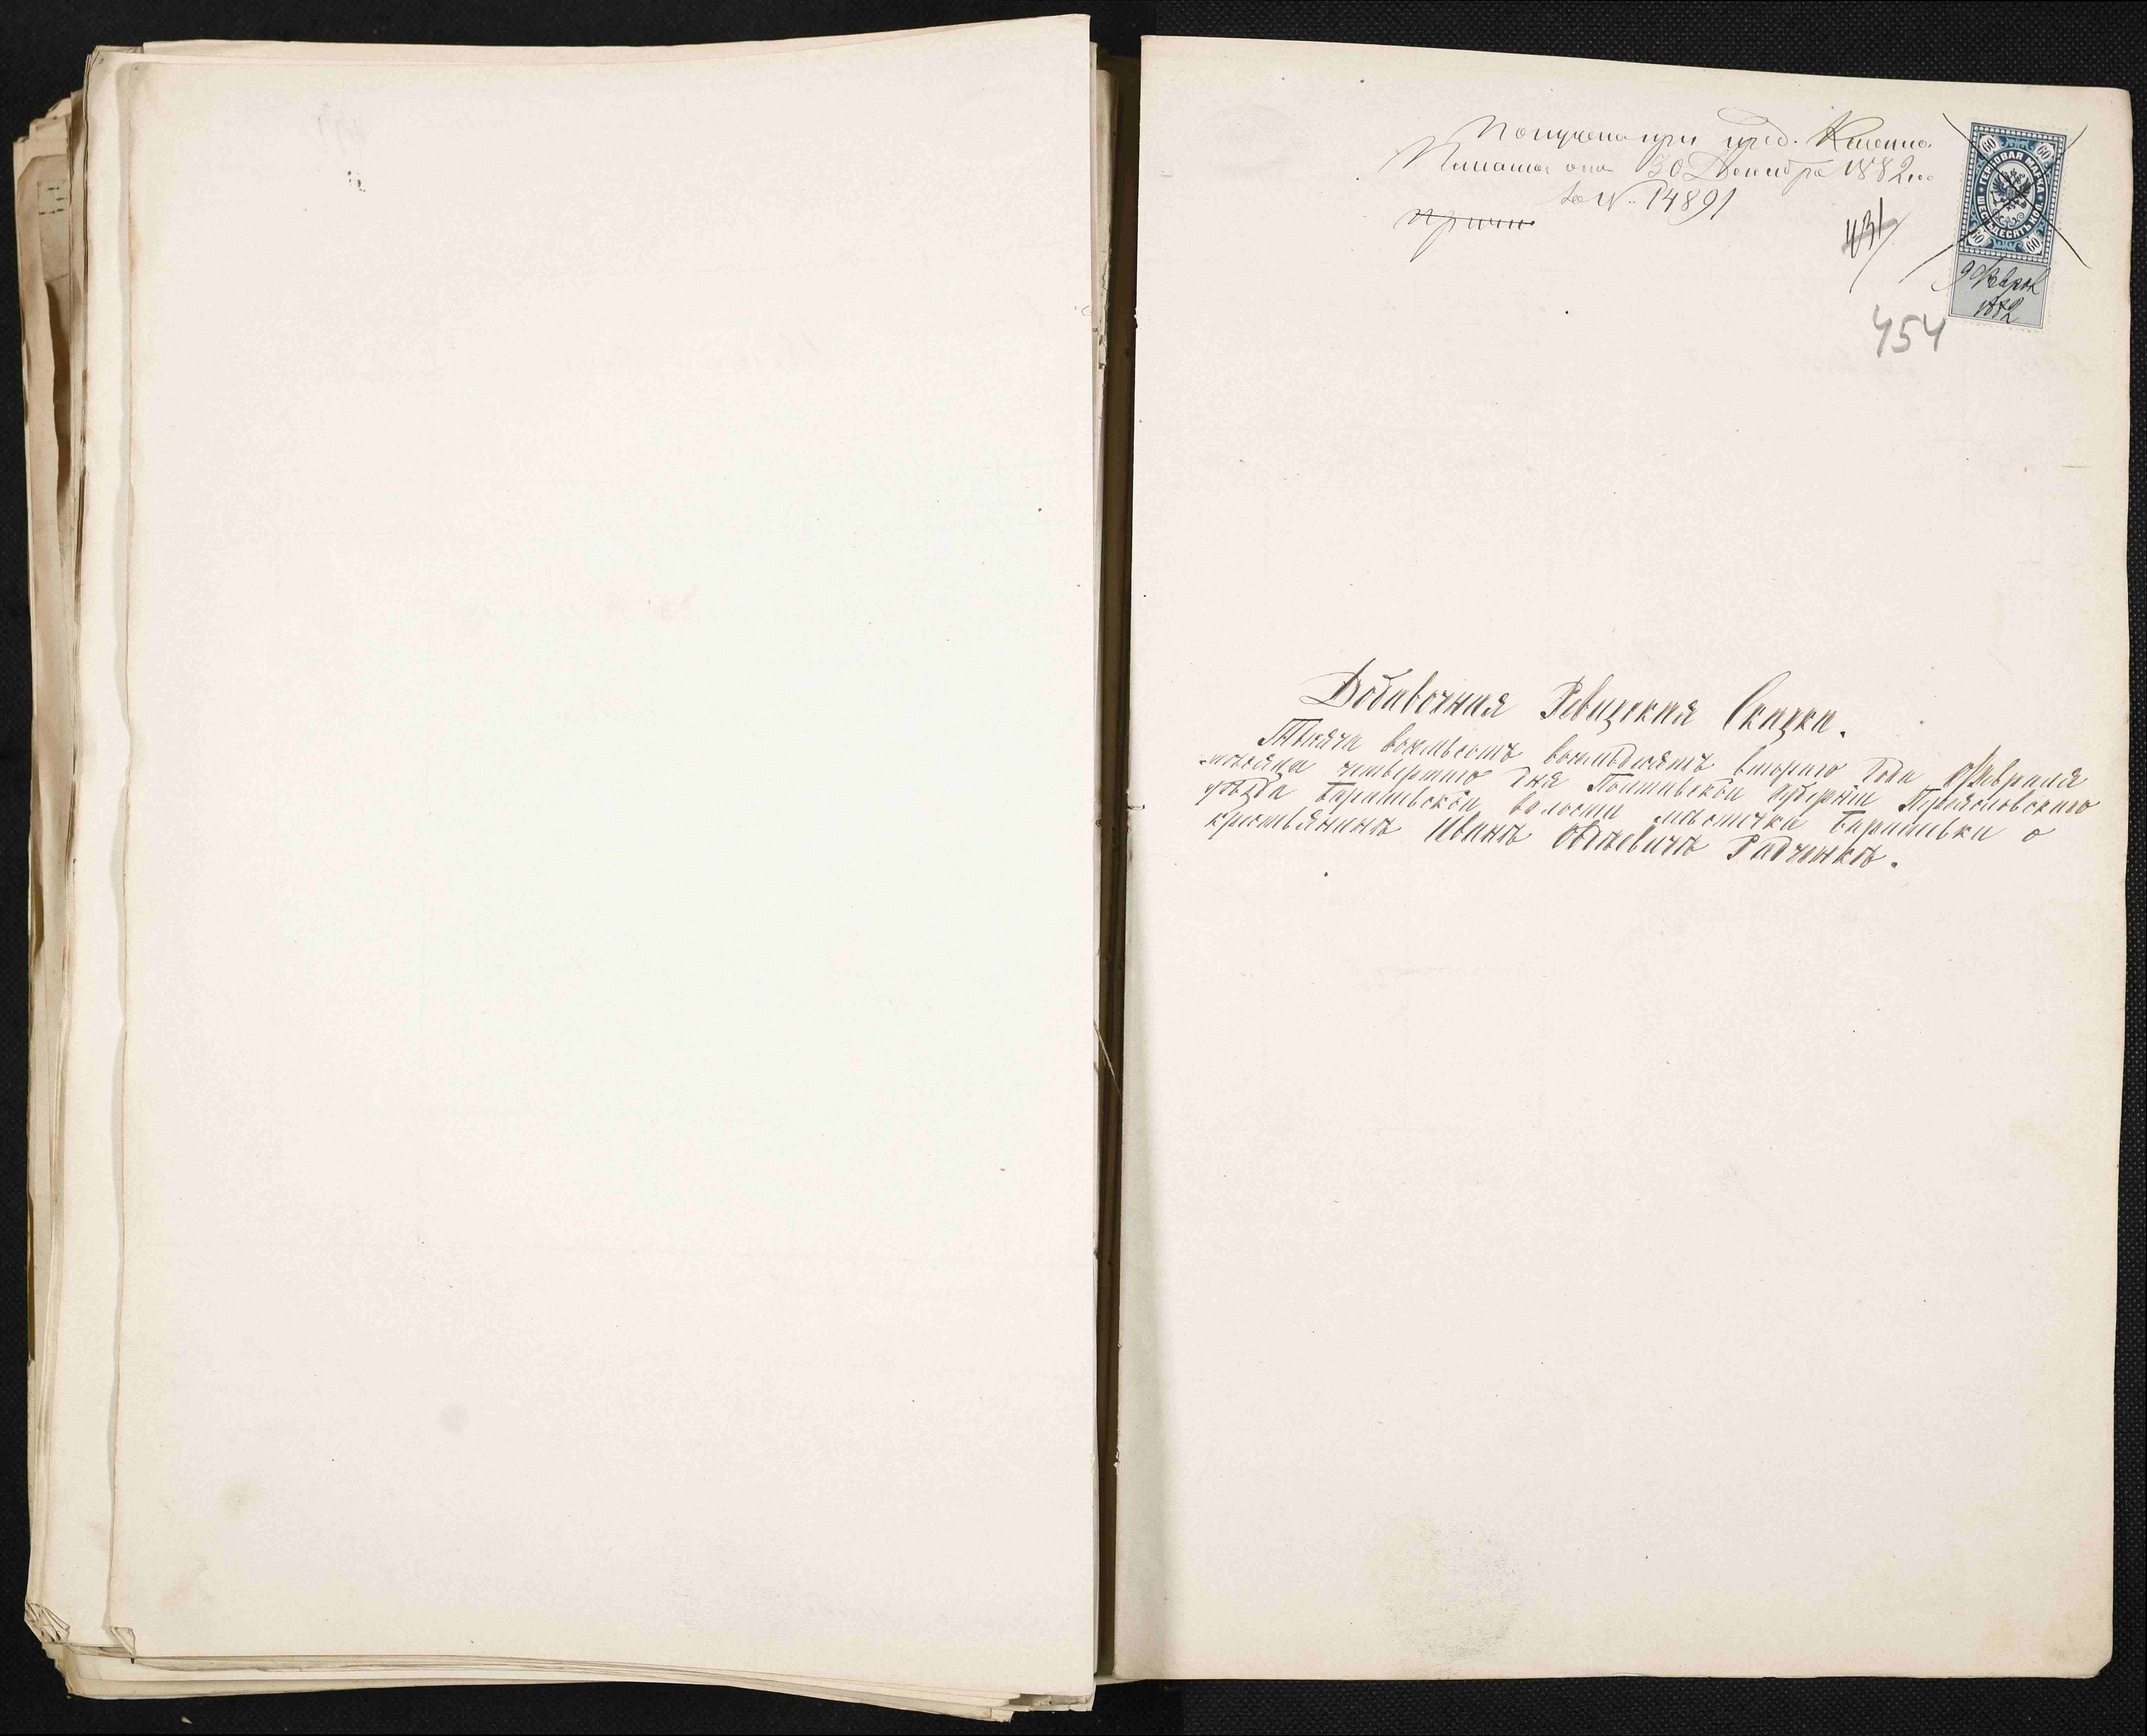 Получена при пред. Казенной
Палаты отъ 30 Декабря 1882 г.
за № 14891
431
ГЕРБОВАЯ МАРКА
ШЕСТЬДЕСЯТЪ КОП.
60 60
60 60
9 Феврал
1882
454
Добавочная Ревизская Сказка.
Тысяча восемьсотъ восемьдесятъ втораго года Февраля
месяца четвертаго дня Полтавской Губерніи Переяславскаго
уѣзда Барышевской волости мѣстечка Барышевки о
крестьянинѣ Иванѣ Радченкѣ.